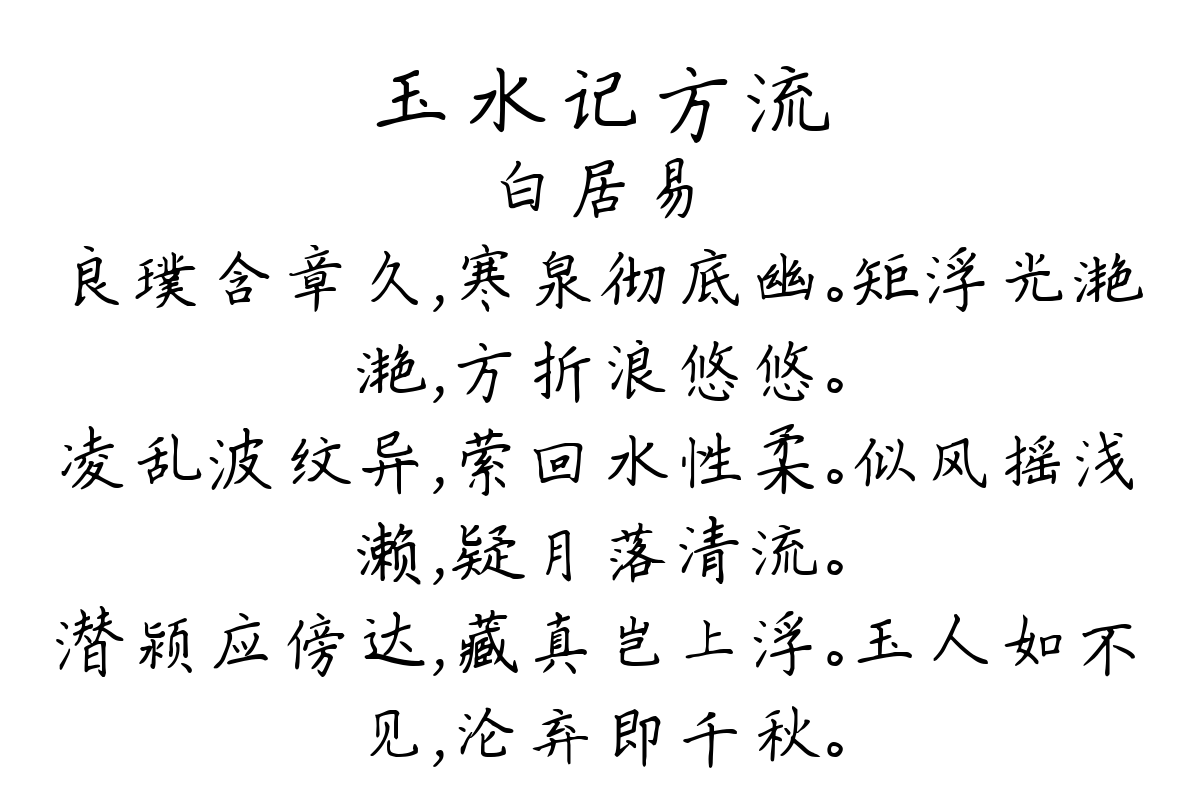 玉水记方流
白居易
良璞含章久,寒泉彻底幽。矩浮光滟
滟,方折浪悠悠。
凌乱波纹异,萦回水性柔。似风摇浅
濑,疑月落清流。
潜颍应傍达,藏真岂上浮。玉人如不
见,沦弃即千秋。